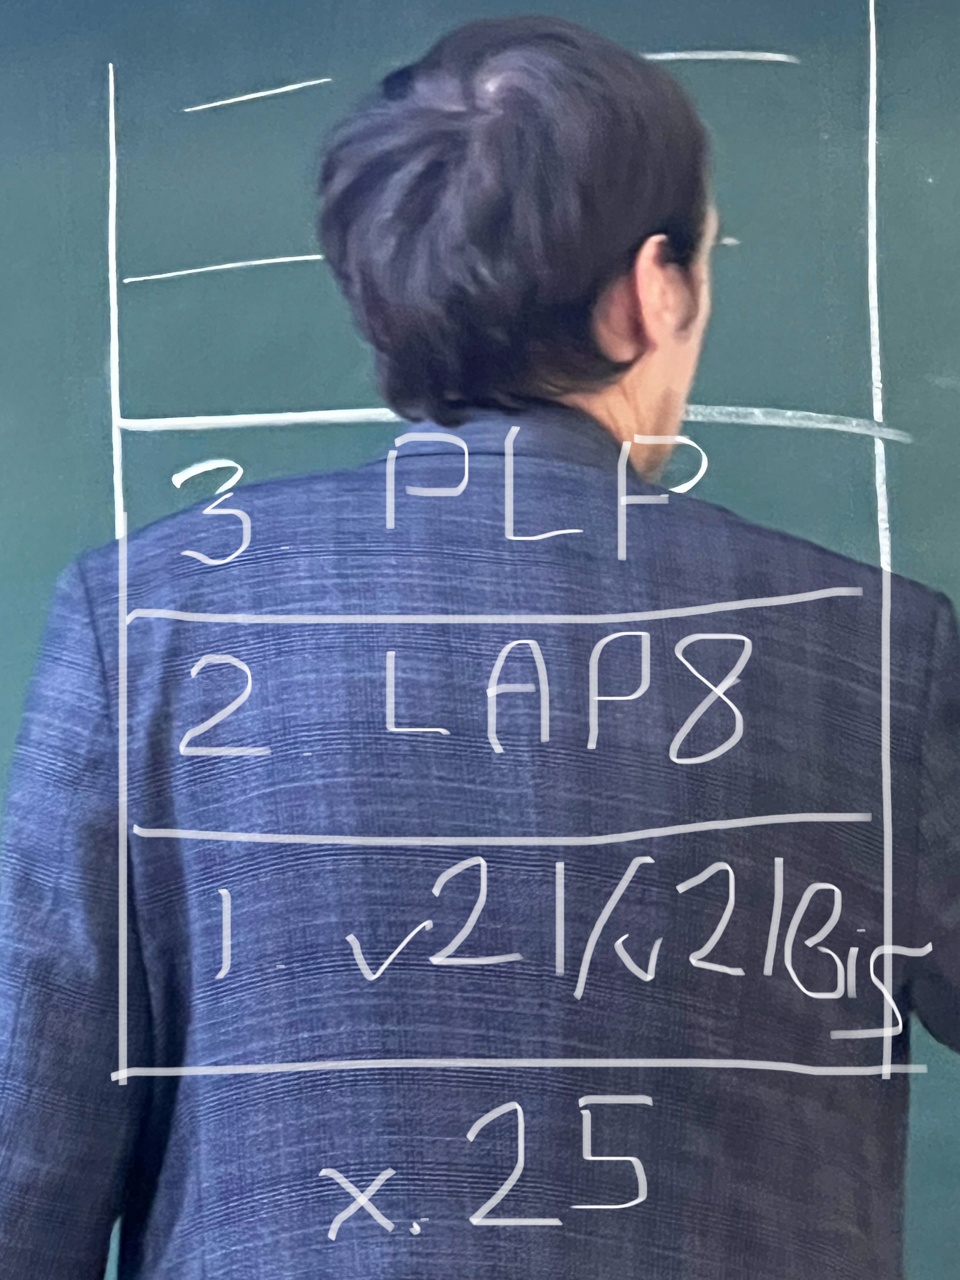 3 PLP
2. LAP8
1. v21/v21Bis
x.25